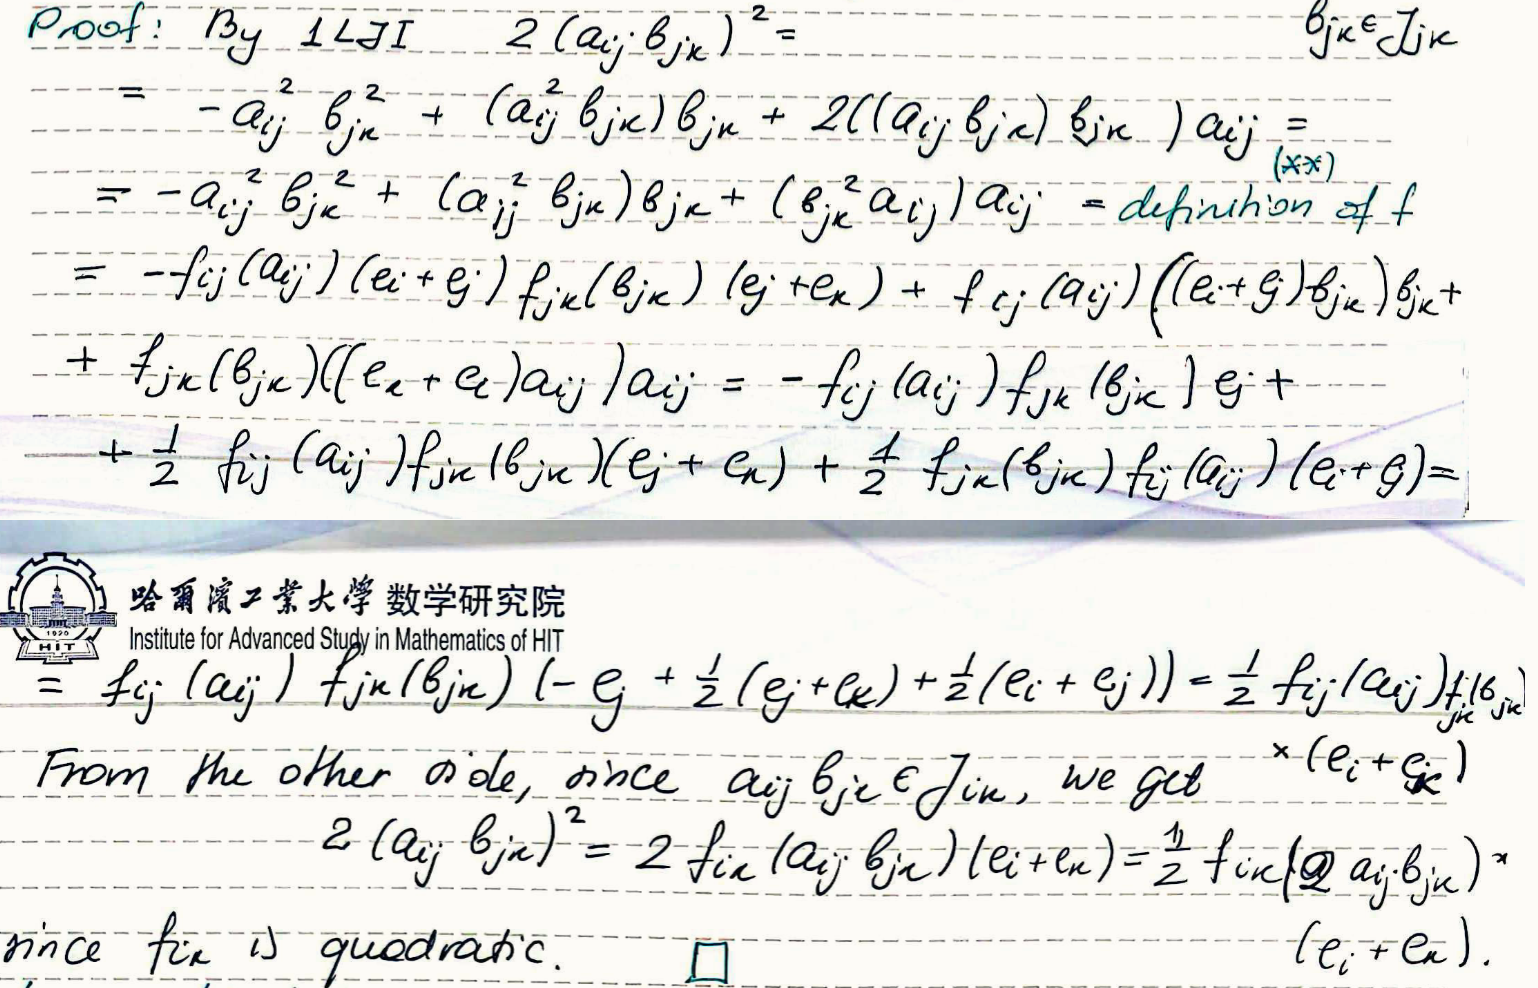 Proof: By 1LJI 2(a_ij b_jk)² = b_jk ∈ J_jk
= -a_ij² b_jk² + (a_ij² b_jk) b_jk + 2((a_ij b_jk) b_jk) a_ij =
(**)
= -a_ij² b_jk² + (a_ij² b_jk) b_jk + (b_jk² a_ij) a_ij = definition of f
= -f_ij(a_ij)(e_i + e_j) f_jk(b_jk)(e_j + e_k) + f_ij(a_ij)((e_i + e_j) b_jk) b_jk +
+ f_jk(b_jk)((e_k + e_i) a_ij) a_ij = -f_ij(a_ij) f_jk(b_jk) e_j +
+ 1/2 f_ij(a_ij) f_jk(b_jk)(e_j + e_k) + 1/2 f_jk(b_jk) f_ij(a_ij)(e_i + e_j) =
哈爾濱工業大學 数学研究院
1920
HIT
Institute for Advanced Study in Mathematics of HIT
= f_ij(a_ij) f_jk(b_jk)(-e_j + 1/2(e_j + e_k) + 1/2(e_i + e_j)) = 1/2 f_ij(a_ij) f_jk(b_jk)
× (e_i + e_k)
From the other side, since a_ij b_jk ∈ J_ik, we get
2(a_ij b_jk)² = 2 f_ik(a_ij b_jk)(e_i + e_k) = 1/2 f_ik(2 a_ij·b_jk) ×
since f_ik is quadratic. □ (e_i + e_k).